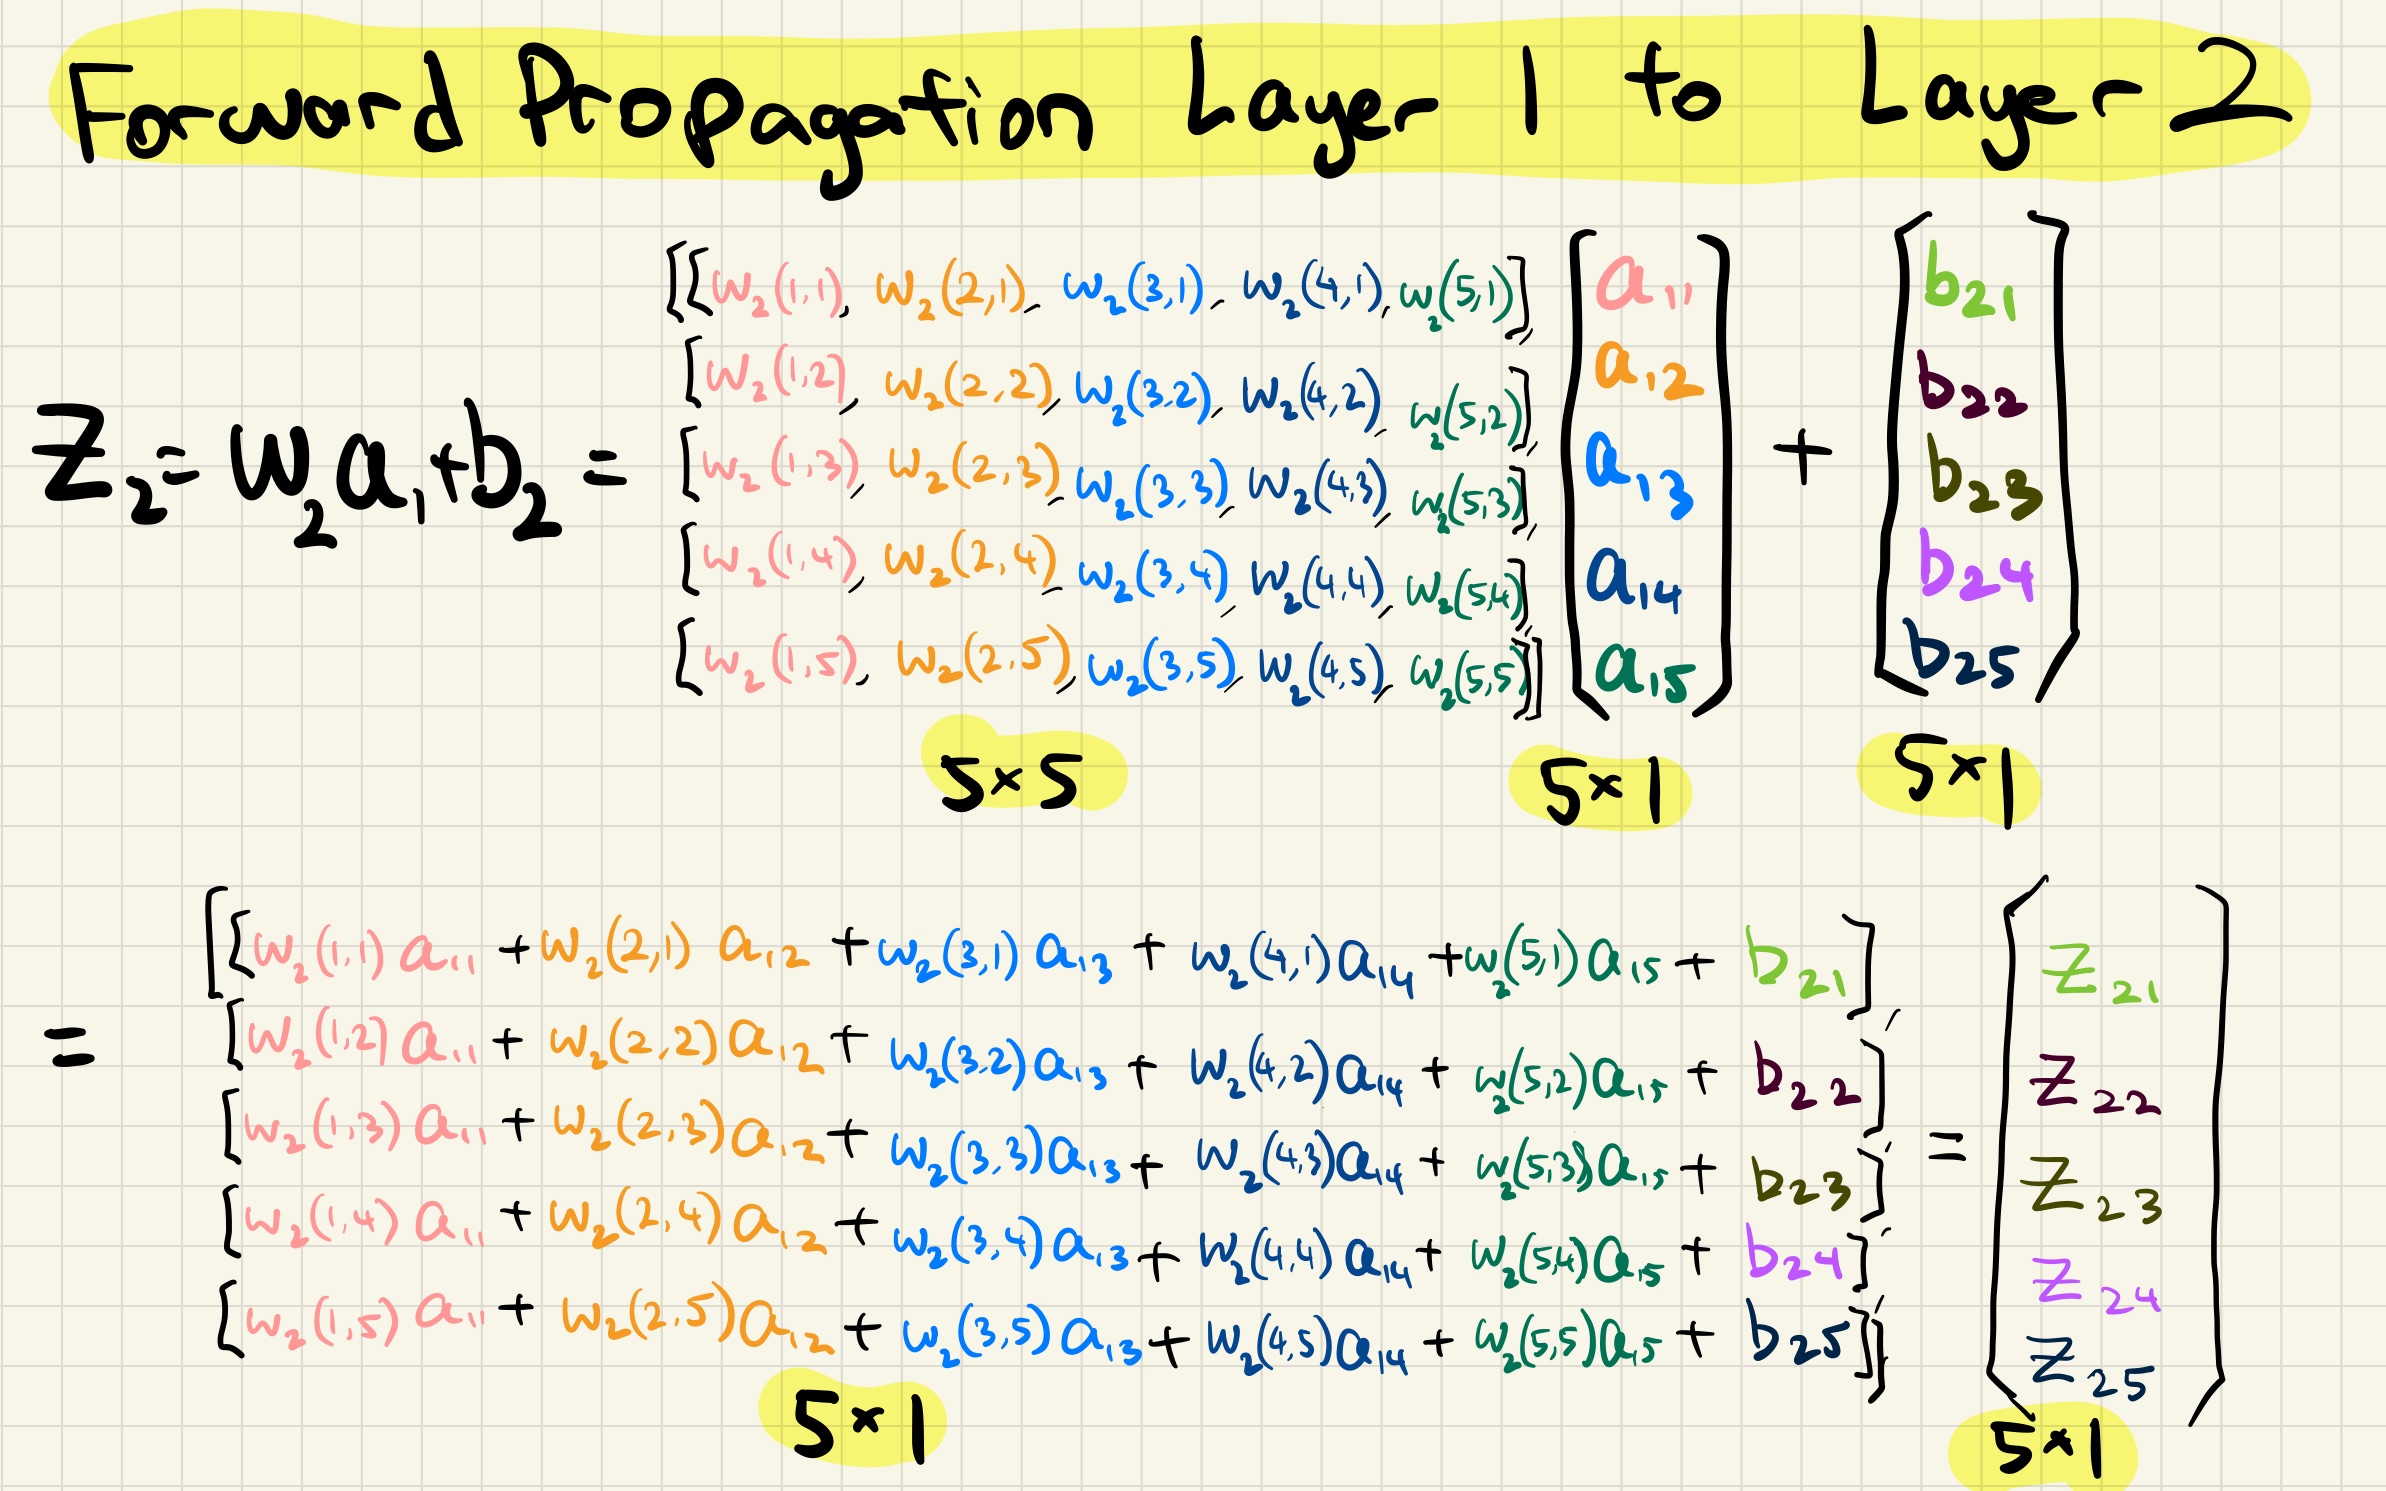 Forward Propagation Layer 1 to Layer 2
Z₂ = W₂a₁+b₂ =
[[w₂(1,1), w₂(2,1), w₂(3,1), w₂(4,1), w₂(5,1)], a₁₁ b₂₁
[w₂(1,2), w₂(2,2), w₂(3,2), w₂(4,2), w₂(5,2)], a₁₂ b₂₂
[w₂(1,3), w₂(2,3), w₂(3,3), w₂(4,3), w₂(5,3)], a₁₃ + b₂₃
[w₂(1,4), w₂(2,4), w₂(3,4), w₂(4,4), w₂(5,4)], a₁₄ b₂₄
[w₂(1,5), w₂(2,5), w₂(3,5), w₂(4,5), w₂(5,5)]] a₁₅ b₂₅
5×5 5×1 5×1
[[w₂(1,1)a₁₁ + w₂(2,1)a₁₂ + w₂(3,1)a₁₃ + w₂(4,1)a₁₄ + w₂(5,1)a₁₅ + b₂₁], z₂₁
= [w₂(1,2)a₁₁ + w₂(2,2)a₁₂ + w₂(3,2)a₁₃ + w₂(4,2)a₁₄ + w₂(5,2)a₁₅ + b₂₂], z₂₂
[w₂(1,3)a₁₁ + w₂(2,3)a₁₂ + w₂(3,3)a₁₃ + w₂(4,3)a₁₄ + w₂(5,3)a₁₅ + b₂₃], = z₂₃
[w₂(1,4)a₁₁ + w₂(2,4)a₁₂ + w₂(3,4)a₁₃ + w₂(4,4)a₁₄ + w₂(5,4)a₁₅ + b₂₄], z₂₄
[w₂(1,5)a₁₁ + w₂(2,5)a₁₂ + w₂(3,5)a₁₃ + w₂(4,5)a₁₄ + w₂(5,5)a₁₅ + b₂₅]] z₂₅
5×1 5×1